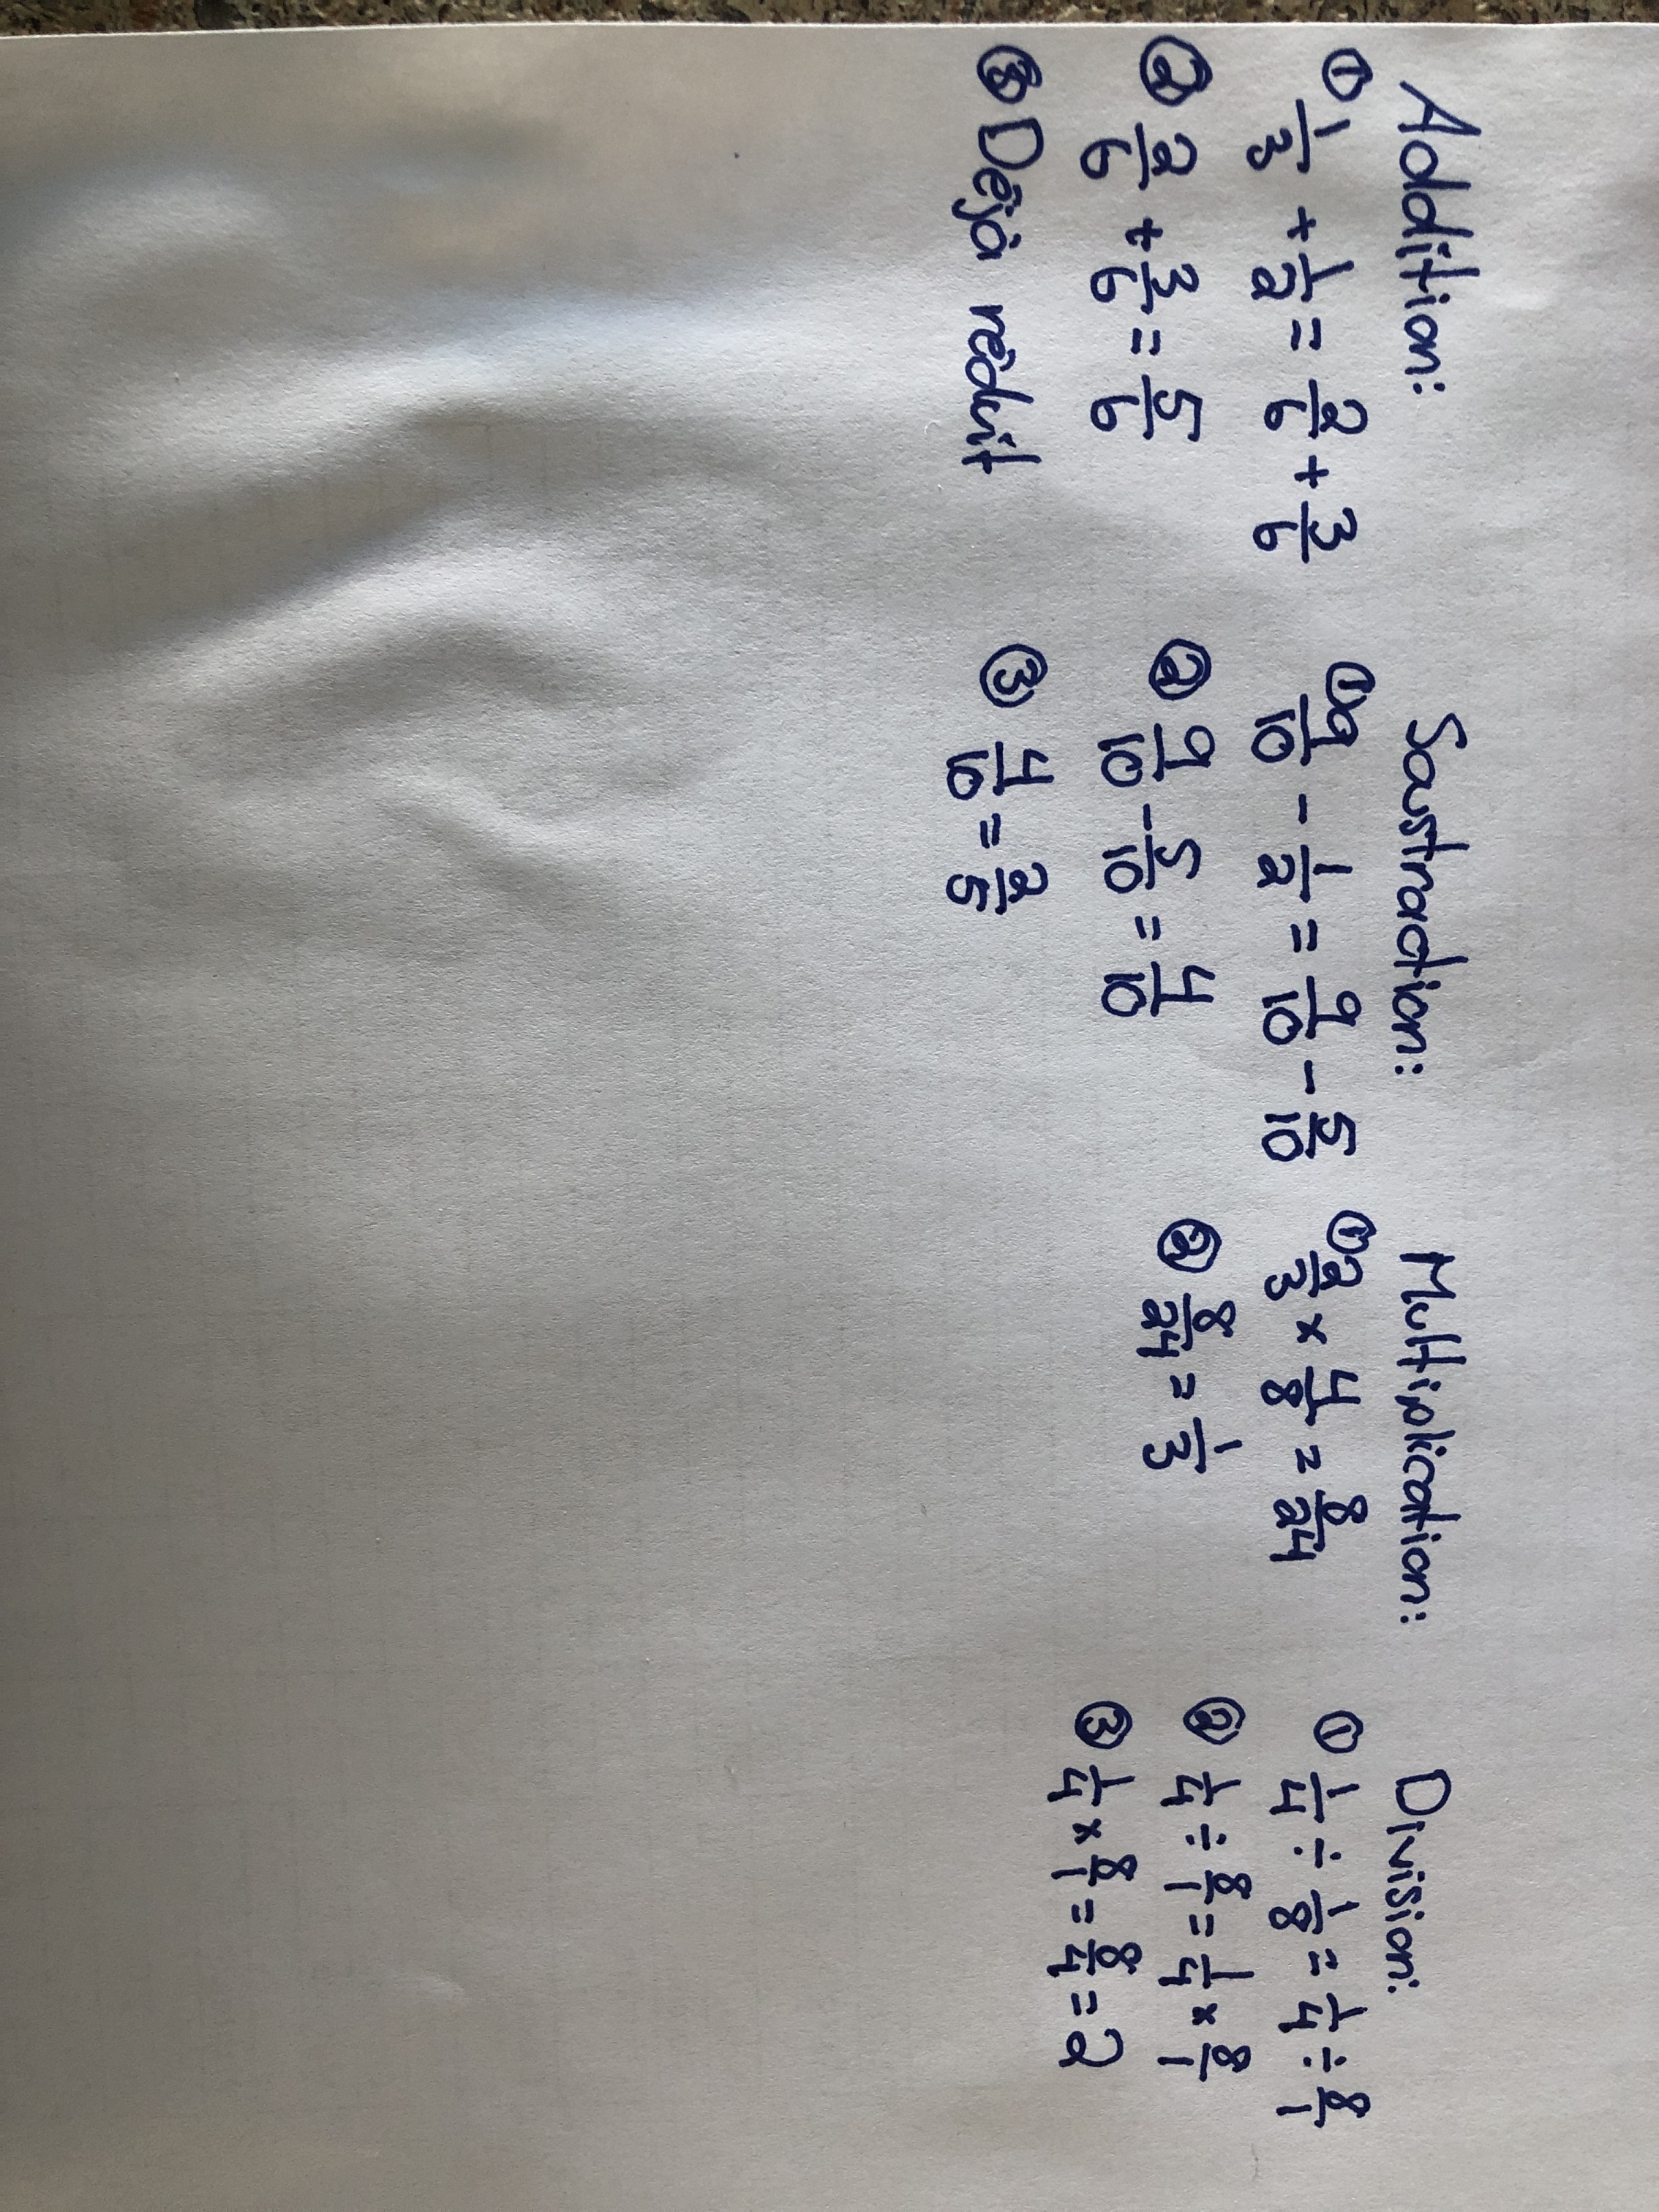 Addition:
① 1/3 + 1/2 = 2/6 + 3/6
② 2/6 + 3/6 = 5/6
③ Déjà réduit
Soustraction:
① 9/10 - 1/2 = 9/10 - 5/10
② 9/10 - 5/10 = 4/10
③ 4/10 = 2/5
Multiplication:
① 2/3 × 4/8 = 8/24
② 8/24 = 1/3
Division:
① 1/4 ÷ 1/8 = 1/4 ÷ 8/1
② 1/4 ÷ 8/1 = 1/4 × 8/1
③ 1/4 × 8/1 = 8/4 = 2